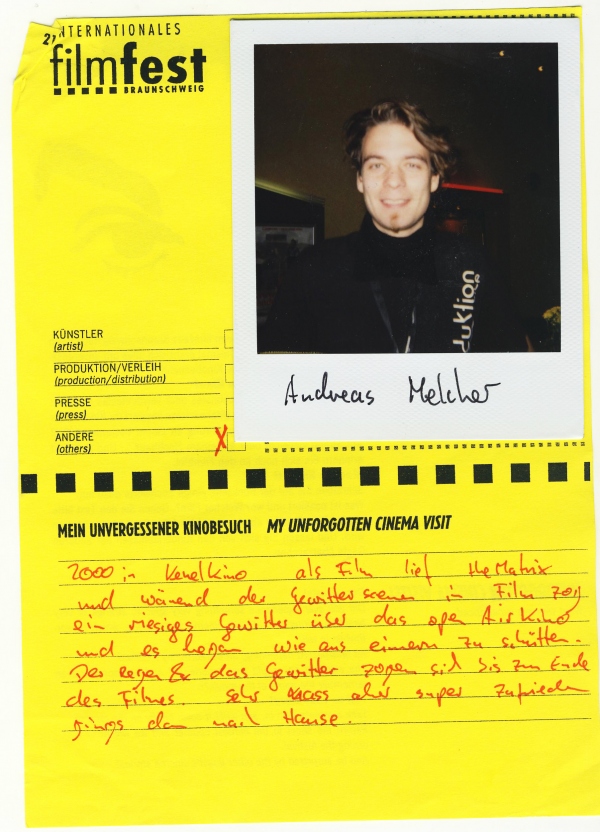 21. INTERNATIONALES
filmfest
BRAUNSCHWEIG
duktion
Andreas Melcher
KÜNSTLER
(artist)
PRODUKTION/VERLEIH
(production/distribution)
PRESSE
(press)
ANDERE
(others)
X
MEIN UNVERGESSENER KINOBESUCH MY UNFORGOTTEN CINEMA VISIT
2000 in als Film lief the Matrix
und wärend der Gewitterscenen im Film zog
ein riesiges Gewitter über das open Air Kino
und es began wie aus eimern zu schütten.
Der regen & das Gewitter zogen sich bis zum Ende
des Filmes. Sehr nass aber super zufrieden
gings dan nach Hause.